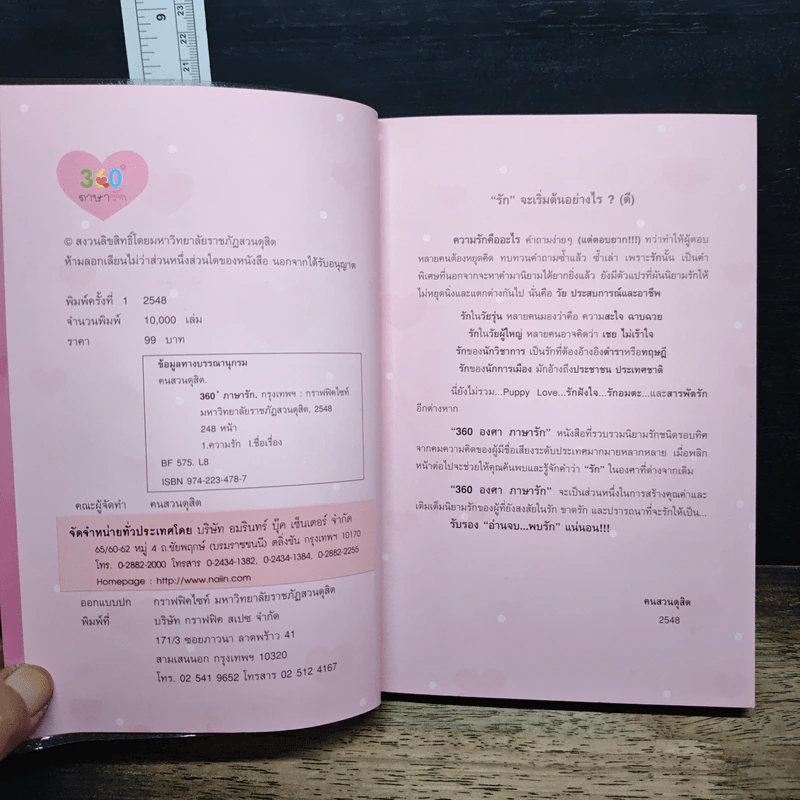 9
23
22
21
360°
ภาษารัก
© สงวนลิขสิทธิ์โดยมหาวิทยาลัยราชภัฏสวนดุสิต
ห้ามลอกเลียนไม่ว่าส่วนหนึ่งส่วนใดของหนังสือ นอกจากได้รับอนุญาต
พิมพ์ครั้งที่ 1 2548
จำนวนพิมพ์ 10,000 เล่ม
ราคา 99 บาท
ข้อมูลทางบรรณานุกรม
คนสวนดุสิต.
360° ภาษารัก. กรุงเทพฯ : กราฟฟิคไซท์
มหาวิทยาลัยราชภัฏสวนดุสิต, 2548
248 หน้า
1.ความรัก I.ชื่อเรื่อง
BF 575. L8
ISBN 974-223-478-7
คณะผู้จัดทำ คนสวนดุสิต
จัดจำหน่ายทั่วประเทศโดย บริษัท อมรินทร์ บุ๊ค เซ็นเตอร์ จำกัด
65/60-62 หมู่ 4 ถ.ชัยพฤกษ์ (บรมราชชนนี) ตลิ่งชัน กรุงเทพฯ 10170
โทร. 0-2882-2000 โทรสาร 0-2434-1382, 0-2434-1384, 0-2882-2255
Homepage : http://www.naiin.com
ออกแบบปก กราฟฟิคไซท์ มหาวิทยาลัยราชภัฏสวนดุสิต
พิมพ์ที่ บริษัท กราฟฟิค สเปซ จำกัด
171/3 ซอยภาวนา ลาดพร้าว 41
สามเสนนอก กรุงเทพฯ 10320
โทร. 02 541 9652 โทรสาร 02 512 4167
“รัก” จะเริ่มต้นอย่างไร ? (ดี)
ความรักคืออะไร คำถามง่ายๆ (แต่ตอบยาก!!!) ทว่าทำให้ผู้ตอบ
หลายคนต้องหยุดคิด ทบทวนคำถามซ้ำแล้ว ซ้ำเล่า เพราะรักนั้น เป็นคำ
พิเศษที่นอกจากจะหาคำมานิยามได้ยากยิ่งแล้ว ยังมีตัวแปรที่ผันนิยามรักให้
ไม่หยุดนิ่งและแตกต่างกันไป นั่นคือ วัย ประสบการณ์และอาชีพ
รักในวัยรุ่น หลายคนมองว่าคือ ความสะใจ ฉาบฉวย
รักในวัยผู้ใหญ่ หลายคนอาจคิดว่า เชย ไม่เร้าใจ
รักของนักวิชาการ เป็นรักที่ต้องอ้างอิงตำราหรือทฤษฎี
รักของนักการเมือง มักอ้างถึงประชาชน ประเทศชาติ
นี่ยังไม่รวม...Puppy Love...รักฝังใจ...รักอมตะ...และสารพัดรัก
อีกต่างหาก
“360 องศา ภาษารัก” หนังสือที่รวบรวมนิยามรักชนิดรอบทิศ
จากคมความคิดของผู้มีชื่อเสียงระดับประเทศมากมายหลากหลาย เมื่อพลิก
หน้าต่อไปจะช่วยให้คุณค้นพบและรู้จักคำว่า “รัก” ในองศาที่ต่างจากเดิม
“360 องศา ภาษารัก” จะเป็นส่วนหนึ่งในการสร้างคุณค่าและ
เติมเต็มนิยามรักของผู้ที่ยังสงสัยในรัก ขาดรัก และปรารถนาที่จะรักให้เป็น...
รับรอง “อ่านจบ...พบรัก” แน่นอน!!!
คนสวนดุสิต
2548